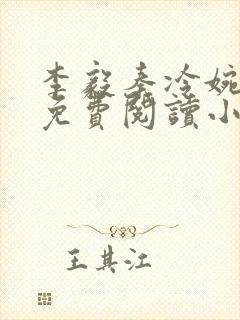 李毅秦冷婉
免費閱讀小
王其江